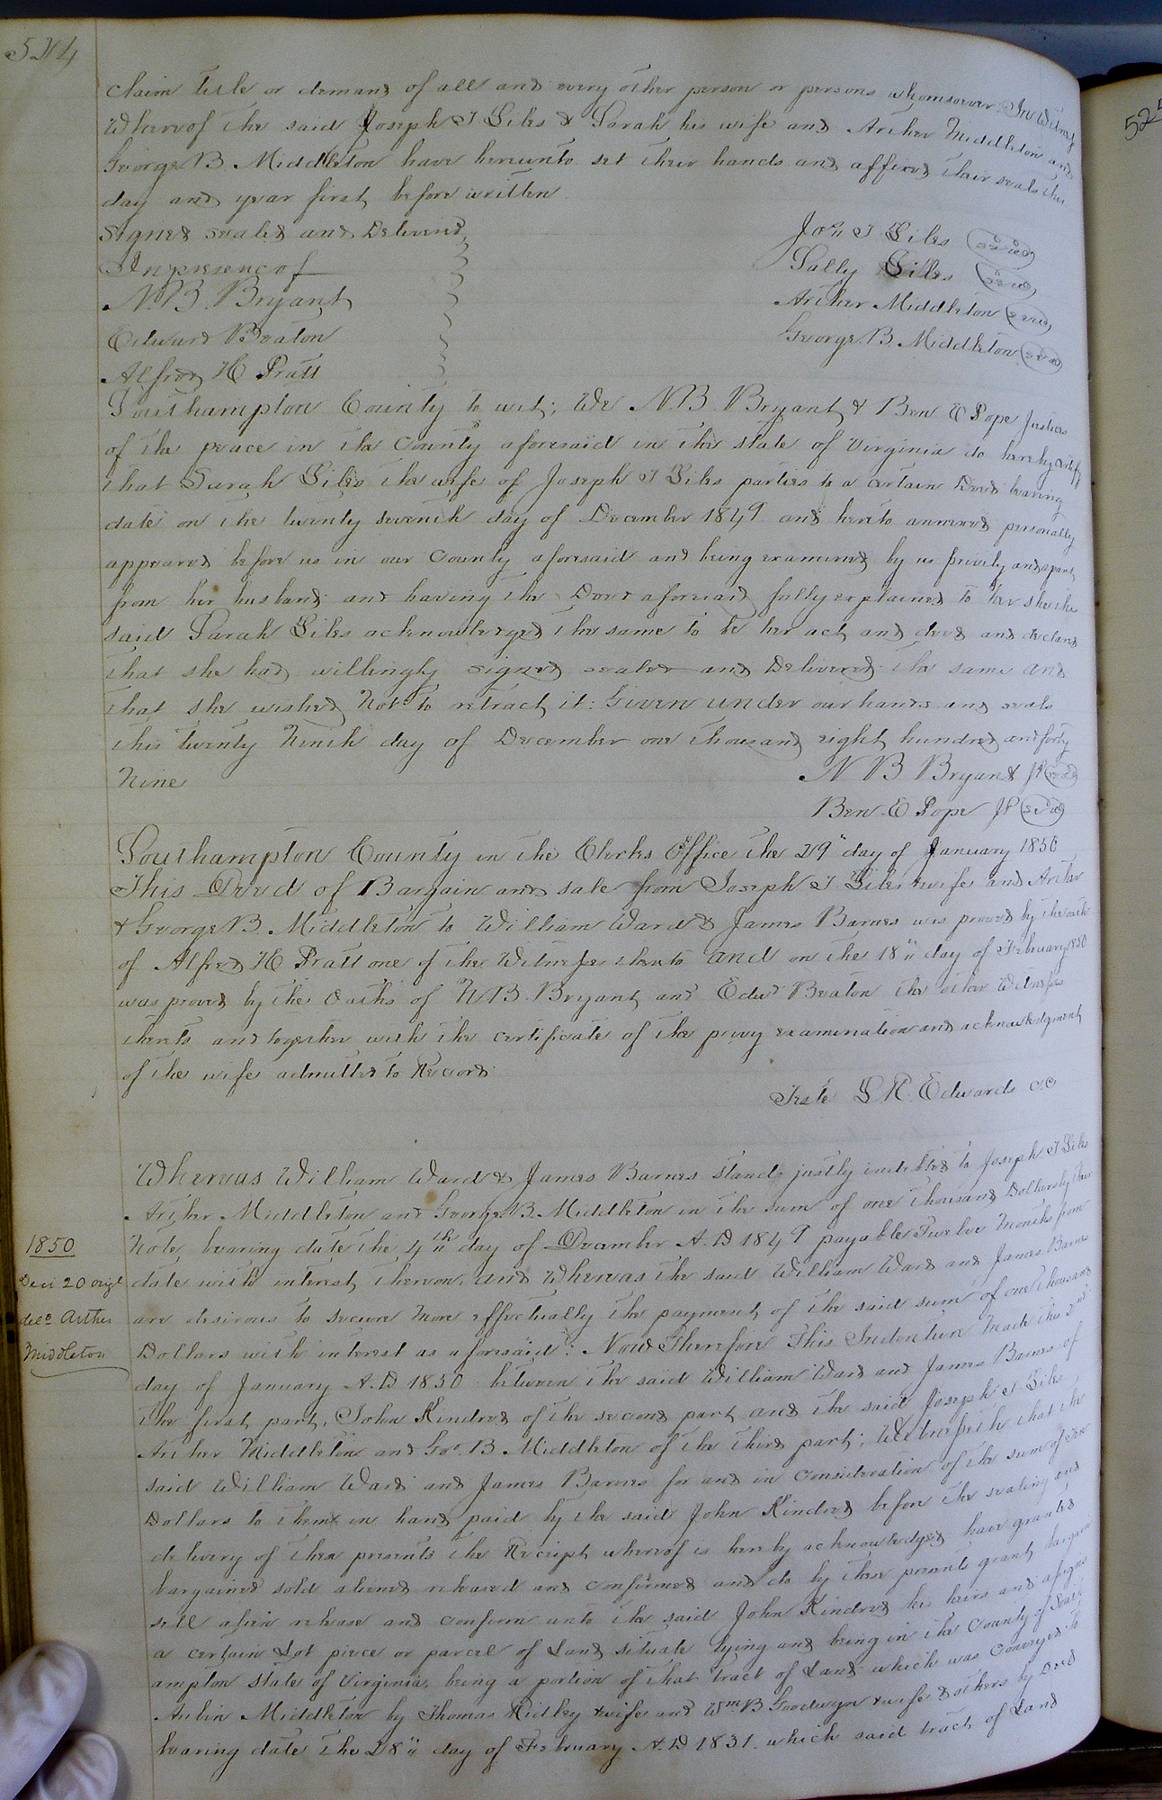 524
claim title or demand of all and every other person or persons whomsoever In Witness
Whereof the said Joseph T Giles & Sarah his wife and Archer Middleton and
George B. Middleton have hereunto set their hands and affixed their seals the
day and year first before written
Signed sealed and Delivered
In presence of
N. B. Bryant
Edward Beaton
Alfred H Pratt
Jos T Giles (seal)
Sally Giles (seal)
Archer Middleton (seal)
George B. Middleton (seal)
Southampton County to wit; We N B Bryant & Ben E Pope Justices
of the peace in the County aforesaid in the state of Virginia do hereby certify
that Sarah Giles the wife of Joseph T Giles parties to a certain Deed bearing
date on the twenty seventh day of December 1849 and hereto annexed personally
appeared before us in our County aforesaid and being examined by us privily and apart
from her husband and having the Deed aforesaid fully explained to her she the
said Sarah Giles acknowledged the same to be her act and deed and declared
that she had willingly signed sealed and Delivered the same and
that she wished Not to retract it: Given under our hands and seals
this twenty Ninth day of December one thousand eight hundred and forty
Nine
N B Bryant JP (seal)
Ben E Pope JP (seal)
Southampton County in the Clerks Office the 29" day of January 1850
This Deed of Bargain and sale from Joseph T Giles & wife and Archer
& George B. Middleton to William Ward & James Barnes was proved by the oath
of Alfred H Pratt one of the Witnesses thereto and on the 18" day of February 1850
was proved by the oaths of N B. Bryant and Edwd Beaton the other Witnesses
thereto and together with the certificate of the privy examination and acknowledgment
of the wife admitted to Record
Teste L R. Edwards CC
Whereas William Ward & James Barnes stands justly indebted to Joseph T Giles
Archer Middleton and George B. Middleton in the sum of one thousand Dollars by their
Note, bearing date the 4th day of December A. D 1849 payable Twelve Months from
date with interest thereon, and Whereas the said William Ward and James Barnes
are desirous to secure more effectually the payment of the said sum of one thousand
Dollars with interest as aforesaid: Now Therefore This Indenture Made this 2nd
day of January A. D 1850 between the said William Ward and James Barnes of
the first part, John Kindred of the second part and the said Joseph T Giles
Archer Middleton and Geo. B Middleton of the third part; Witnesseth that the
said William Ward and James Barnes for and in consideration of the sum of one
Dollars to them in hand paid by the said John Kindred before the sealing and
delivery of these presents the Receipt whereof is hereby acknowledged have granted
bargained sold aliened released and confirmed and do by these presents grant bargain
sell alien release and confirm unto the said John Kindred his heirs and assigns
a certain Lot piece or parcel of Land situate lying and being in the County of South
ampton State of Virginia, being a portion of that tract of Land which was conveyed to
Archer Middleton by Thomas Ridley & wife and Wm. B Goodwyn & wife & others by Deed
bearing date the 28" day of February A. D 1831. which said tract of Land
1850
Decr 20 origl
deld Arther
Middleton